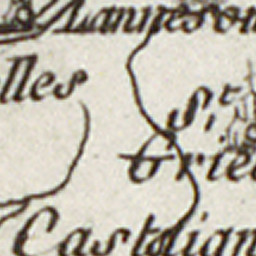 Lanneson
lles
St
Grie
Castaign